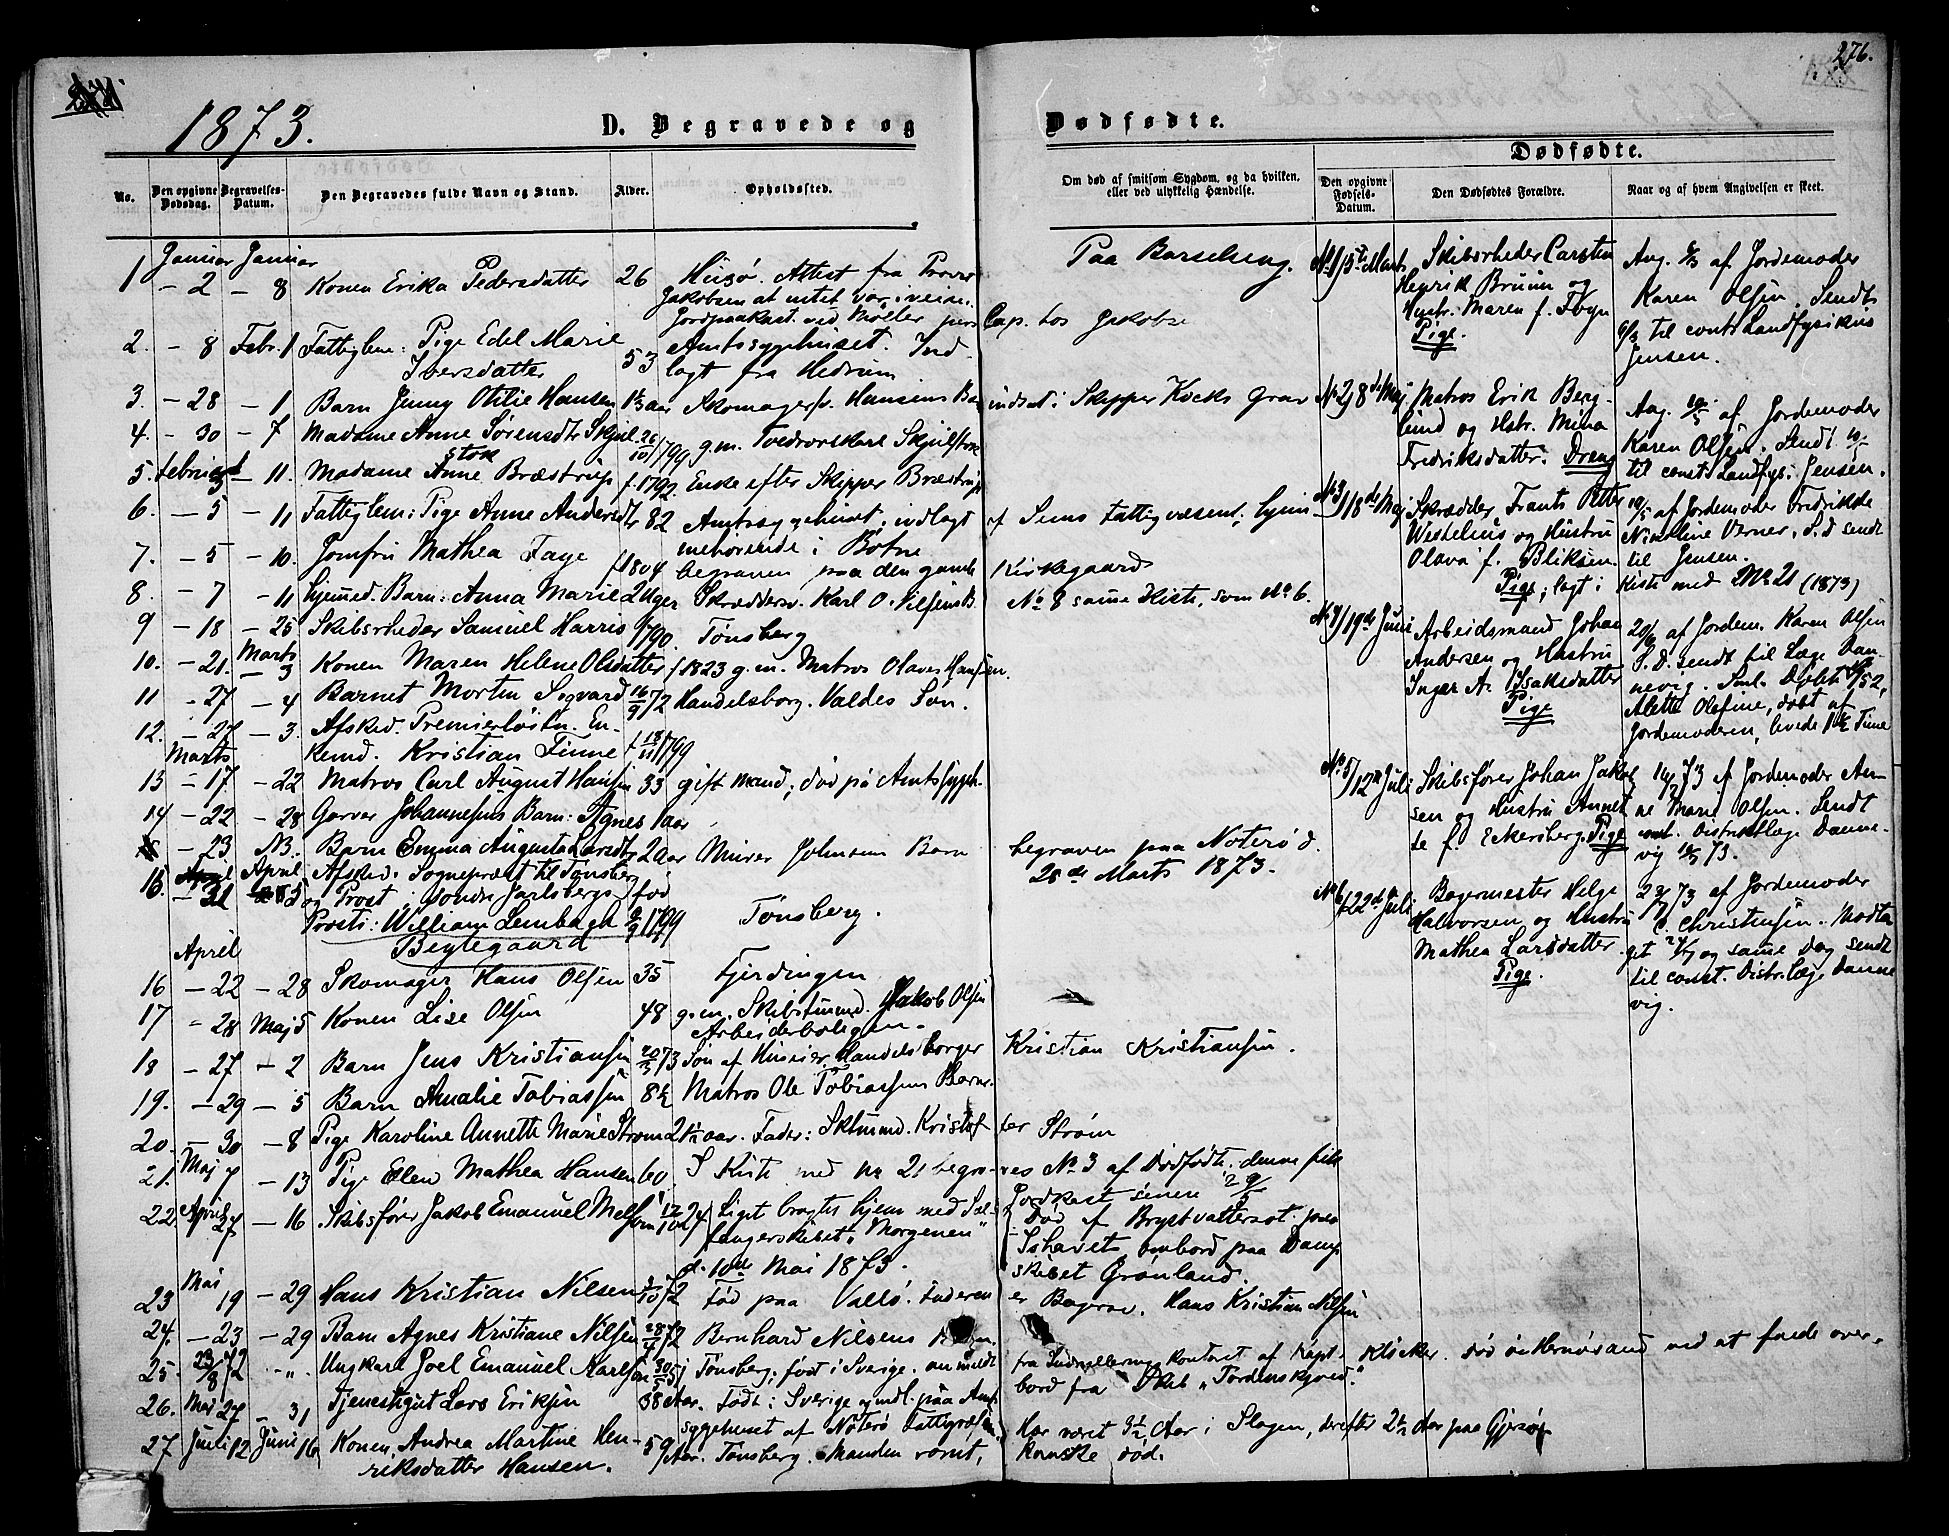 276.
1873.
D. Begravede og
Dødfødte.
No.
Den opgivne Dødsdag.
Begravelses-Datum.
Den Begravedes fulde Navn og Stand.
Alder.
Opholdssted.
Om død af smitsom Sygdom, og da hvilken, eller ved ulykkelig Hændelse.
Dødfødte.
Den opgivne Fødsels-Datum.
Den Dødfødtes Forældre.
Naar og af hvem Angivelsen er skeet.
Januar Januar
1 - 2 - 8 Konen Erika Pedersdatter 26 Husø. Attest fra Provst Paa Barselseng.
Jakobsen at intet var i veien.
Jordpaakast. ved Møller
2. - 8 Febr. 1 Fattiglem: Pige Edel Marie Iversdatter 53 Amtssygehuset. Indlagt fra Hedrum
3. - 28 - 1 Barn Jenny Otilie Hansen 1½ aar Skomagersv. Hansens Barn indsat i Skipper Kocks Grav
4. - 30 - 7 Madame Anne Sørensdtr Skjelstok 26/10 1799 g.m. Tvedrorskarl Skjelstok
5. Februar 3 - 11. Madame Anne Bræstrup f. 1792. Enke efter Skipper Bræstrup
6. - 5 - 11 Fattiglem: Pige Anne Andersdtr 82 Amtssygehuset, indlagt af Sems Fattigvæsen; hjemmehørende i Botne
7. - 5 - 10. Jomfru Mathea Faye f 1804 begraven paa den gamle Kirkegaard
8. - 7 - 11 hjemmed. Barn: Anna Marie 2 Uger Skræddersv. Karl O. Nilsens B. No 8 samme Kiste, som No 6.
9 - 18 - 25 Skibsrheder Samuel Harris 1790. Tønsberg
Marts
10. - 21. - 3 Konen Maren Helene Olsdatter f 1823 g.m. Matros Olaves Hansen.
11 - 27 - 4 Barnet Morten Sigvard 16/9 72 Handelsborg. Valdes Søn.
12. - 27 - 3. Afsked. Premierløitn. Enkemd. Kristian Finne f 18/11 1799
Marts
13 - 17 - 22 Matros Carl August Hansen 33 gift mand; død på Amtssygeh.
14 - 22 - 28 Garver Johannesens Barn: Agnes 1 aar
- 23 NB. Barn Emma Augusta Larsdtr 2 aar Murer Johnsens Barn begraven paa Nøterø d. 28de Marts 1873.
April April
15. - 31 5 Afsked. Sogneprest til Tønsberg og Provst i Søndre Jarlsbergs Provsti: William Lembach Beylegaard fød 1799 Tønsberg.
April
16 - 22 - 28 Skomager Hans Olsen 35 Fjerdingen
17 - 28 Maj 5 Konen Lise Olsen 48 g.m. Skibstømmd. Jakob Olsen Arbeiderboligen.
18 - 27 - 2 Barn Jens Kristiansen 20/3 73 Søn af Huseier Handelsborger Kristian Kristiansen.
19. - 29 - 5 Barn Amalie Tobiassen 8½ Matros Ole Tobiassens Barn.
20. - 30 - 8 Pige Karoline Annette Marie Strøm 2½ aar. Fader: Sktømmd. Kristoffer Strøm
21. Maj 7 - 13 Pige Elen Mathea Hansen 60 I Kiste med No 21 begraves No 3 af Dødfødte, denne fik Jordkast senere 29/5
22. April 27 - 16 Skibsfører Jakob Emanuel Melsom 12/10 24 Liget bragtes hjem med Sælfangerskibet „Morgenen" d. 10de Mai 1873. Død af Brystvattersot paa Ishavet ombord paa Dampskibet Grønland.
23 Mai 19 - 29 Hans Kristian Nilsen 1/10 72 Fød paa Vallø. Faderen er Bagersv. Hans Kristian Nilsen
24. - 23 - 29 Barn Agnes Kristiane Nilsen 28/4 72 Bernhard Nilsens Barn.
25. 23/8 72 - „ - Ungkarl Joel Emanuel Karlsson 30/5 51 i Tønsberg; født i Sverige. anmeldt fra Indrulleringskontoret af Kapt. Kløcker. død ved at falde overbord fra Skib „Tordenskjold".
26. Maj 27 - 31 Tjenestegut Lars Eriksen 38 Aar. Født i Sverige indl. paa Amtssygehuset af Nøterø Fattigvæsen.
27 Juli 12 Juni 16 Konen Andrea Martine Henriksdatter Hansen. 59 Aar. Tønsberg. Manden rømt, kanske død. Har været 9½ Aar i Slagen, derefter 2½ Aar paa Gjersø
No 1/ 5te Marts Skibsrheder Carsten Henrik Bruun og Hustr. Maren f. Foyn Pige. Ang. 6/3 af Jordemoder Karen Olsen. Sendt 6/3 til const. Landfysikus Jensen.
No 2/ 8de Maj Matros Erik Berglund og Hstr. Mina Fredriksdatter. Dreng Ang. 10/5 af Jordemoder Karen Olsen. Sendt 10/5 til const. Landfys. Jensen.
No 3/ 18de Maj Skrædder Frants Petter Westelius og Hustru Olava f. Bliksen. Pige; lagt i Kiste med No 21 (1873) 19/5 af Jordemoder Fredrikke Nicoline Verner, S.d. sendt til Jensen.
No 4/ 19de Juni Arbeidsmand Johan Andersen og Hustru Inger A. Isaksdatter Pige 20/6 af Jordem. Karen Olsen S. D. sendt til Læge Dannevig. Sml. Døbte 52, Alette Olefine, døbt af Jordemoderen, levede 1½ Time
No 5/ 12te Juli Skibsfører Johan Jakobsen og Hustru Annette f. Eckersberg. Pige 14/7 73 af Jordemoder Anne Marie Olsen. Sendt const. Distriktslæge Dannevig 73.
No 6/ 22de Juli Bagermester Helge Halvorsen og Hustru Mathea Larsdatter. Pige. 22/7 73 af Jordemoder C. Christensen. Modtaget 24/7 og samme Dag sendt til const. Distr.læge Dannevig.